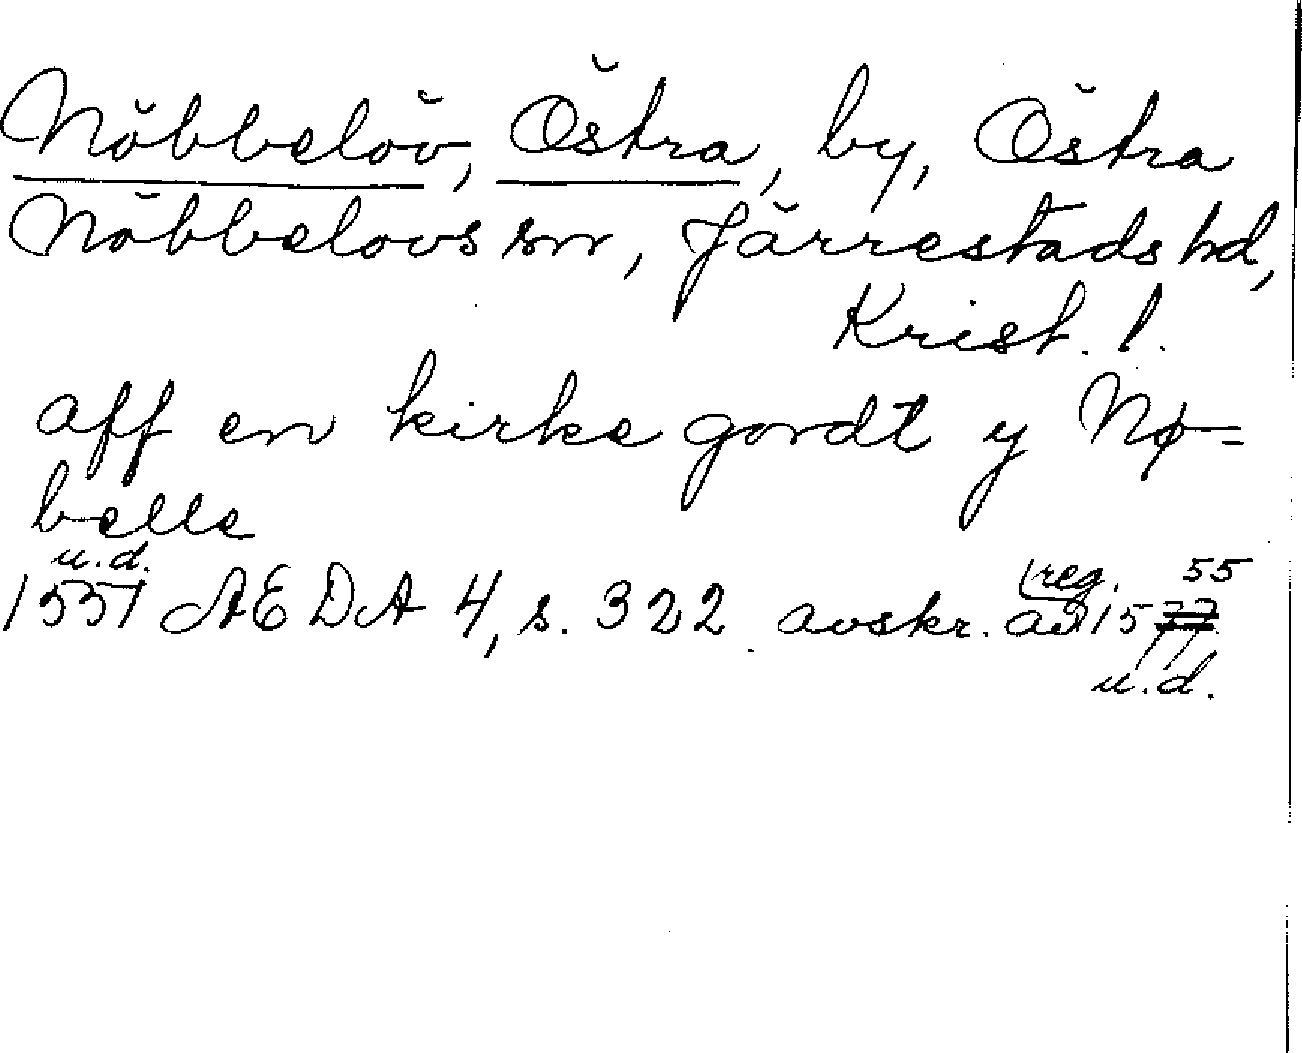 Nöbbelöv, Östra, by, Östra
Nöbbelövs sn, Järrestads hd,
Krist. l.
aff en kirke gordt y Nø-
belle
u.d.
1551 AEDA 4, s. 322 avskr. reg. av 1577 55
u.d.